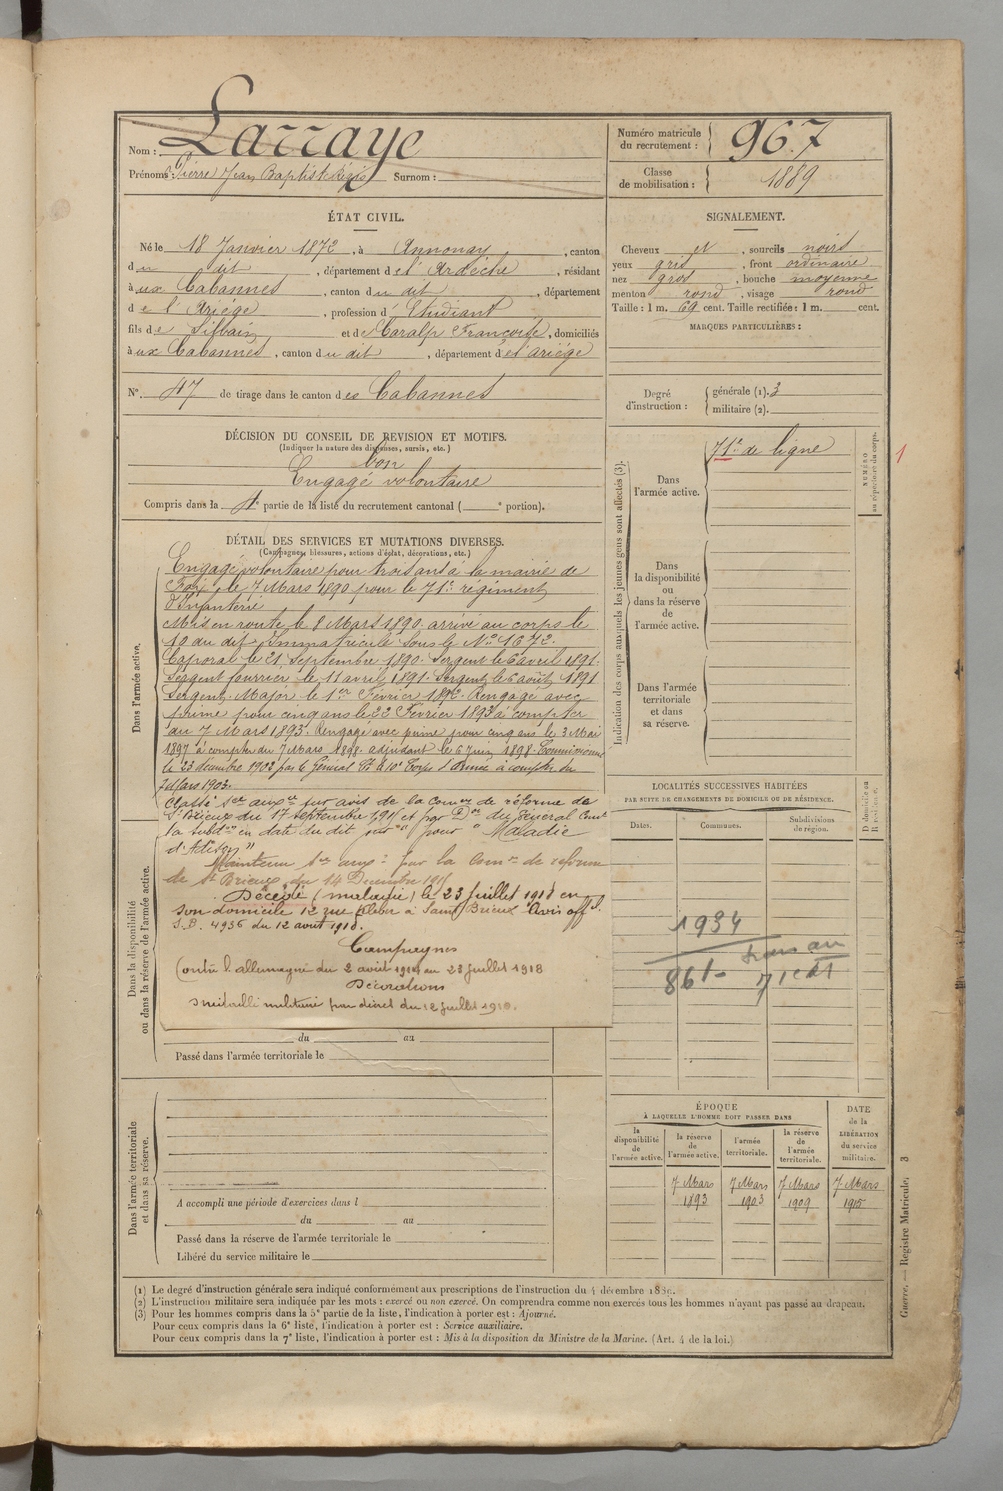 Nom : Larraye
Prénoms : Pierre Jean Baptiste Régis Surnom :
Numéro matricule du recrutement : 967
Classe de mobilisation : 1889
ÉTAT CIVIL.
Né le 18 Janvier 1872, à Annonay, canton
du dit, département de l'Ardèche, résidant
à ux Cabannes, canton du dit, département
de l'Ariége, profession d'Etudiant
fils de Silvain et de Caralp Françoise, domiciliés
à ux Cabannes, canton du dit, département de l'ariége
N° 47 de tirage dans le canton des Cabannes
DÉCISION DU CONSEIL DE REVISION ET MOTIFS.
(Indiquer la nature des dispenses, sursis, etc.)
bon
Engagé volontaire
Compris dans la 4e partie de la liste du recrutement cantonal ( e portion).
SIGNALEMENT.
Cheveux et, sourcils noirs
yeux gris, front ordinaire
nez gros, bouche moyenne
menton rond, visage rond
Taille : 1 m. 69 cent. Taille rectifiée : 1 m. cent.
MARQUES PARTICULIÈRES :
Degré d'instruction : générale (1). 3
militaire (2).
Indication des corps auxquels les jeunes gens sont affectés (3).
Dans l'armée active.
71e de ligne
NUMÉRO au répertoire du corps.
1
Dans la disponibilité ou dans la réserve de l'armée active.
Dans l'armée territoriale et dans sa réserve.
DÉTAIL DES SERVICES ET MUTATIONS DIVERSES.
(Campagnes, blessures, actions d'éclat, décorations, etc.)
Dans l'armée active.
Engagé volontaire pour trois ans à la mairie de
Foix, le 7 Mars 1890 pour le 71e régiment
d'Infanterie
Mis en route le 8 Mars 1890. arrivé au corps le
10 du dit. Immatriculé sous le No 1672.
Caporal le 21 Septembre 1890. Sergent le 6 avril 1891.
Sergent fourrier le 11 avril 1891. Sergent le 6 août 1891
Sergent-Major le 1er Février 1892. Rengagé avec
prime pour cinq ans le 22 Février 1893 à compter
du 7 Mars 1893. Rengagé avec prime pour cinq ans le 3 Mai
1897 à compter du 7 Mars 1898. adjudant le 6 Juin 1898. Commissionné
le 23 décembre 1902 par le Général Ct le 10e Corps d'Armée à compter du
7 Mars 1903.
Classé Sce auxre sur avis de la Comon de réforme de
St Brieuc du 17 septembre 1915 et par Don du Général Comt
la Subdon en date du dit jour pour "Maladie
d'Addison"
Maintenu Sce auxre par la Comon de réforme
de St Brieuc du 14 Decembre 1915
Décédé (maladie) le 23 Juillet 1918 en
son domicile 12 rue Kléber à Saint Brieuc Avis offel
S.B. 4936 du 12 août 1918.
Campagnes
Contre l'allemagne du 2 août 1914 au 23 juillet 1918
Décorations
Médaille militaire par décret du 12 juillet 1910.
Dans la disponibilité ou dans la réserve de l'armée active.
du au
Passé dans l'armée territoriale le
Dans l'armée territoriale et dans sa réserve.
A accompli une période d'exercices dans l
du au
Passé dans la réserve de l'armée territoriale le
Libéré du service militaire le
LOCALITÉS SUCCESSIVES HABITÉES
PAR SUITE DE CHANGEMENTS DE DOMICILE OU DE RÉSIDENCE.
Dates. Communes. Subdivisions de région. D domicile ou R résidence.
1934
861-
ÉPOQUE
À LAQUELLE L'HOMME DOIT PASSER DANS
DATE de la LIBÉRATION du service militaire.
la disponibilité de l'armée active.
la réserve de l'armée active.
l'armée territoriale.
la réserve de l'armée territoriale.
7 Mars 1893
7 Mars 1903
7 Mars 1909
7 Mars 1915
Guerre. — Registre Matricule. 3
(1) Le degré d'instruction générale sera indiqué conformément aux prescriptions de l'instruction du 4 décembre 1889.
(2) L'instruction militaire sera indiquée par les mots : exercé ou non exercé. On comprendra comme non exercés tous les hommes n'ayant pas passé au drapeau.
(3) Pour les hommes compris dans la 5e partie de la liste, l'indication à porter est : Ajourné.
Pour ceux compris dans la 6e liste, l'indication à porter est : Service auxiliaire.
Pour ceux compris dans la 7e liste, l'indication à porter est : Mis à la disposition du Ministre de la Marine. (Art. 4 de la loi.)